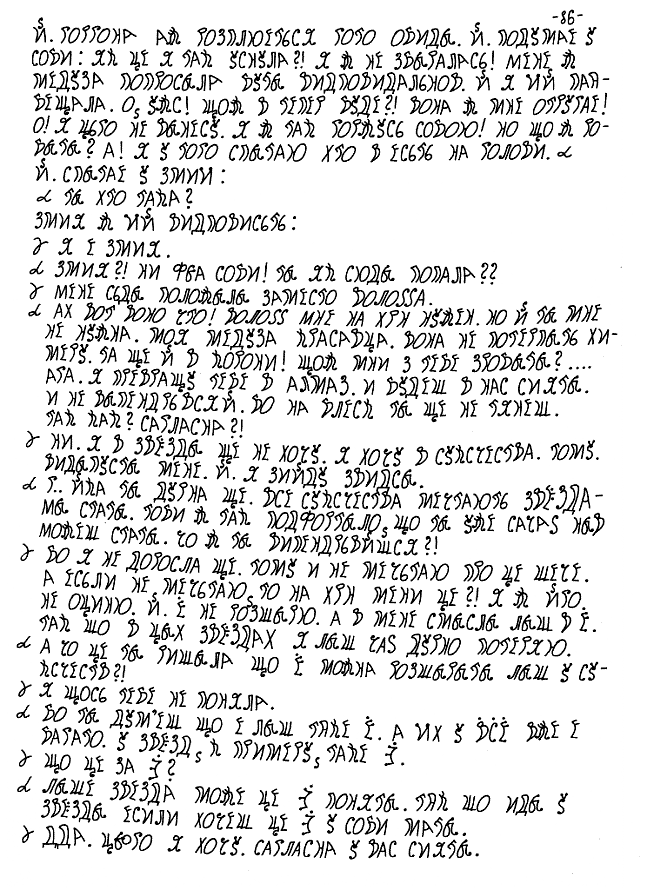 -86-
Й. ГОРГОНА АЖ РОЗПЛЮЄТЬСЯ ТОГО ОБИДЫ. Й. ПОДУМАЕ У
СОБИ: ЯК ЦЕ Я ТАК УСНУЛА?! Я Ж НЕ ЗБЫРАЛАСЬ! МЕНЕ Ж
МЕДУЗА ПОПРОСЫЛА БУТЫ ВИДПОВИДАЛЬНОЙ. Й Я ИЙ
О, УЖС! ЩОЖ В ТЕПЕР БУДЕ?! ВОНА Ж МНЕ
О! Я ЦЬГО НЕ ВЫНЕСУ. Я Ж ТАК ГОРЖУСЬ СОБОЮ! НО ЩО Ж РО-
БЫТЫ? А! Я У ТОГО СПЫТАЮ ХТО В ЕСЬТЬ НА ГОЛОВИ. α
Й. СПЫТАЕ У ЗМИИ:
α ТЫ ХТО ТАКА?
ЗМИЯ Ж ИЙ ВИДПОВИСЬТЬ:
γ Я Е ЗМИЯ.
α ЗМИЯ?! НИ ФЫА СОБИ! ТЫ ЯК СЮДЫ ПОПАЛА??
γ МЕНЕ СЬДЫ ПОЛОЖЫЛЫ ЗАМЕСТО ВОЛОSSА.
α АХ ВОТ ВОНО ЧТО! ВОЛОSS МНЕ НА ХРН НУЖЕН. НО Й ТЫ МНЕ
НЕ НУЖНА. МОЯ МЕДУЗА КРАСАВЦА. ВОНА НЕ ПОТЕРПЫТЬ ХИ-
МЕРУ. ТА ЩЕ Й В КОРОНИ! ЩОЖ МНИ З ТЕБЕ ЗРОБЫТЫ?....
АГА. Я ПРЕВРАЩУ ТЕБЕ В АЛМАЗ. И БУДЕШ В НАС СИЯТЫ.
И НЕ ВЫПЕНДРЬВСЯЙ. БО НА БЛЕСК ТЫ ЩЕ НЕ ТЯНЕШ.
ТАК КАК? САГЛАСНА?!
γ НИ. Я В ЗВЕЗДЫ ЩЕ НЕ ХОЧУ. Я ХОЧУ В СУЖСЧЕСТВА. ТОМУ.
ВИДПУСТЫ МЕНЕ. Й. Я ЗИЙДУ ЗВИДСЫ.
α Г.. ЙКА ТЫ ДУРНА ЩЕ. ВСЕ СУЖСЧЕСТВА МЕЧТАЮТЬ ЗВЕЗДА-
МЫ СТАТЫ. ТОБИ Ж ТАК ПОДФОРТЫЛО, ЩО ТЫ УЖЕ САЧАS
МОЖЕШ СТАТЫ. ЧО Ж ТЫ ВИПЕНДРЬВЙШСЯ?!
γ БО Я НЕ ДОРОСЛА ЩЕ. ТОМУ И НЕ МЕЧЬТАЮ ПРО ЦЕ ЩЕЧЕ.
А ЕСЬЛИ НЕ МЕЧЬТАЮ, ТО НА ХРН МЕНИ ЦЕ?! Я Ж ЙГО.
НЕ ОЦИНЮ. Й. Ё НЕ РОЗШЫРЮ. А В МЕНЕ СМЫСЛЫ ЛЫШ В Ё.
ТАК ЩО В ЦЫХ ЗВЕЗДАХ Я ЛЫШ ЧАS ДУРНО ПОТЕРЯЮ.
α А ЧО ЦЕ ТЫ РИШЫЛА ЩО Ё МОЖНА РОЗШЫРЯТЫ ЛЫШ У СУ-
ЖСЧЕСТВ?!
γ Я ЩОСЬ ТЕБЕ НЕ ПОНЯЛА.
α БО ТЫ ДУМ'ЕШ ЩО Е ЛЫШ ТАКЕ Ё. А ИХ У ВСЁ ВЖЕ Е
БАГАТО. У ЗВЕЗД, К ПРИМЕРУ, ТАКЕ
γ ЩО ЦЕ ЗА
α ЛЫШЕ ЗВЕЗДА МОЖЕ ЦЕ ПОНЯТЫ. ТАК ЩО ИДЫ У
ЗВЕЗДЫ ЕСИЛИ ХОЧЕШ ЦЕ У СОБИ МАТЫ..
γ ДДА. ЦЬОГО Я ХОЧУ. САГЛАСНА У ВАС СИЯТЫ.